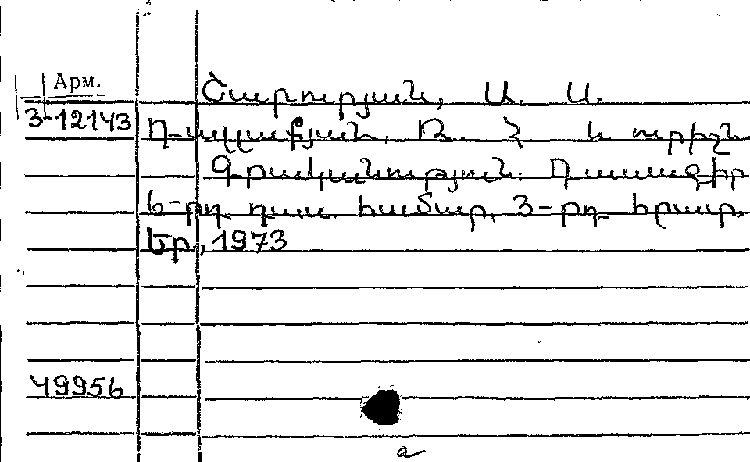 Арм.
Շարուրյան, Ա. Ա.
3-12143
Ղալլաքյան, Ռ. Հ և ուրիշն
Գրականություն: Դասագիր
6-րդ դաս. համար, 3-րդ հրատ.
Եր., 1973
49956
a